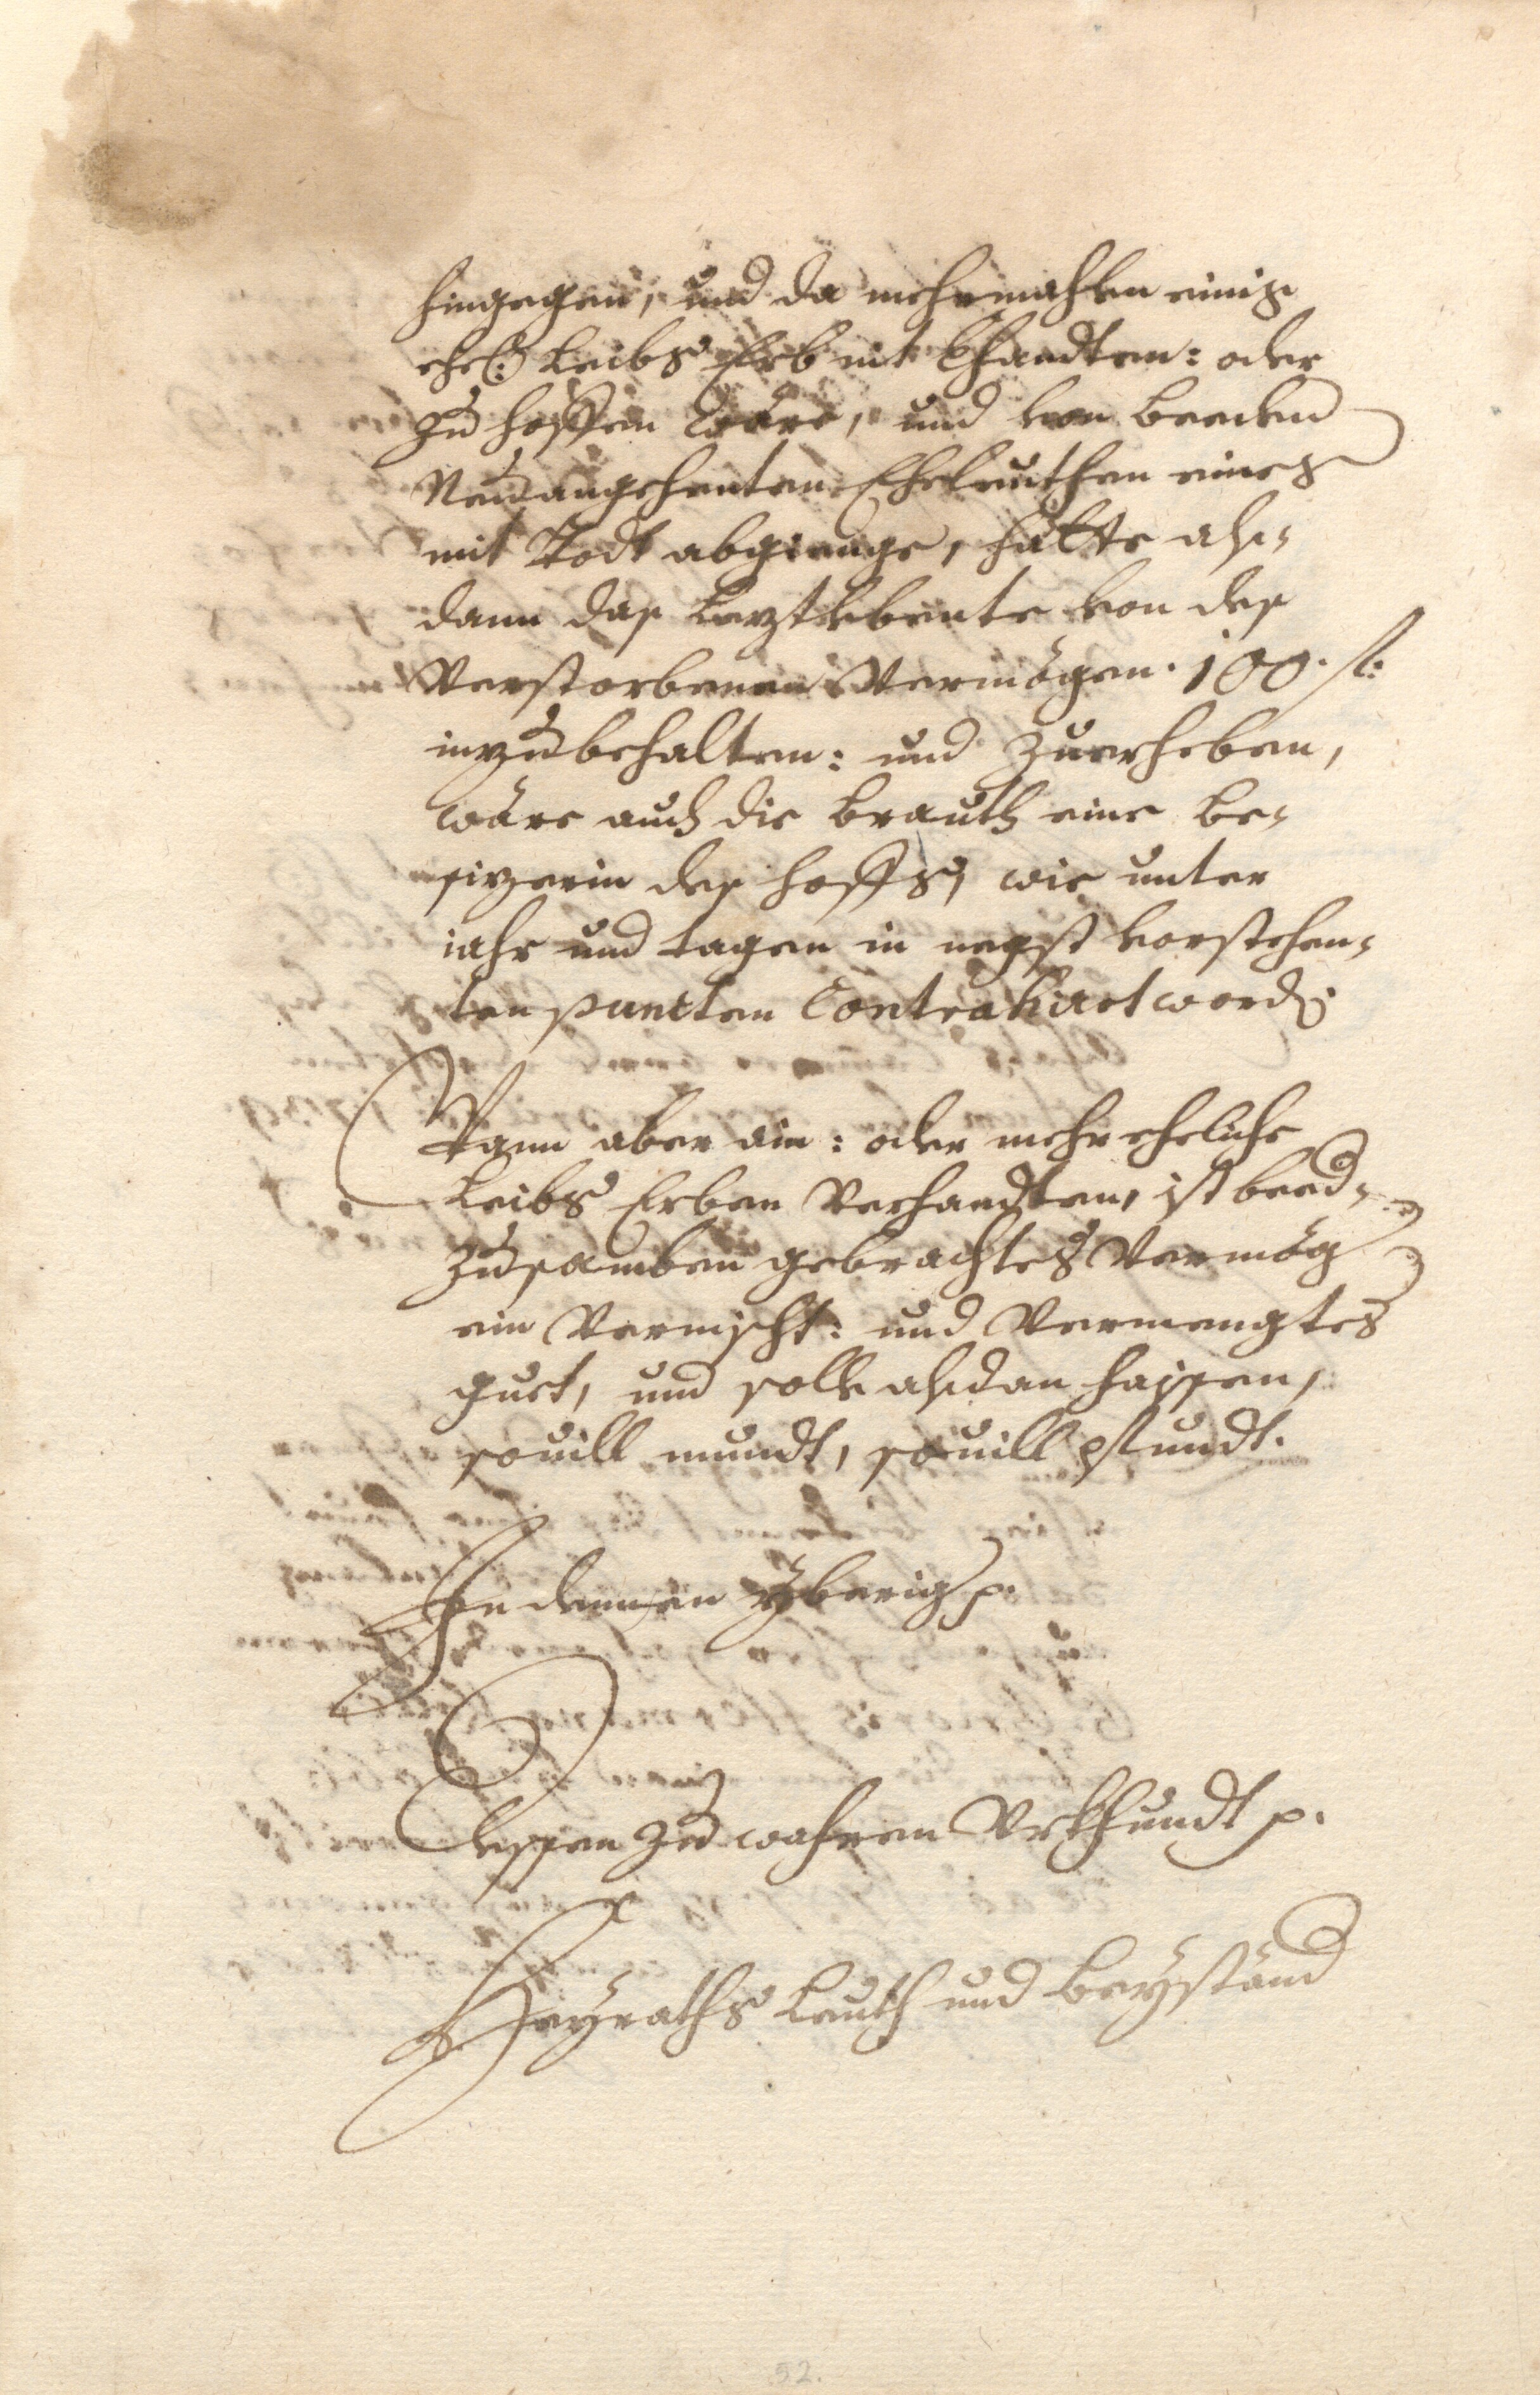 hingegen, und da mehrmahlen einig
ehel: Leibs Erb nit vhandten: oder
zu hoffen wäre, und von beeden
Neuangehenten Eheleuthen eines
mit Todt abgienge, hätte als¬
dann das Leztlebente von des
Verstorbenen Vermögen 100. fl:
inzubehalten: und zuerheben,
wäre auch die Brauth eine Be¬
sizerin des Hoffs, wie unter
iahr und tagen in negst vorstehen¬
ten puncten Contrahiert word.
Wann aber ain: oder mehr eheliche
Leibs Erben Verhandten, ist beed¬
zusamben gebrachtes Vermög
ein Vermischt: und Vermengtes
guet, und solle alsdan haissen,
souill mundt, souill pfundt.
In dennen yberig p.
Dessen zu wahren Vrkhundt p.
Heyraths Leuth und Beyständ
52.